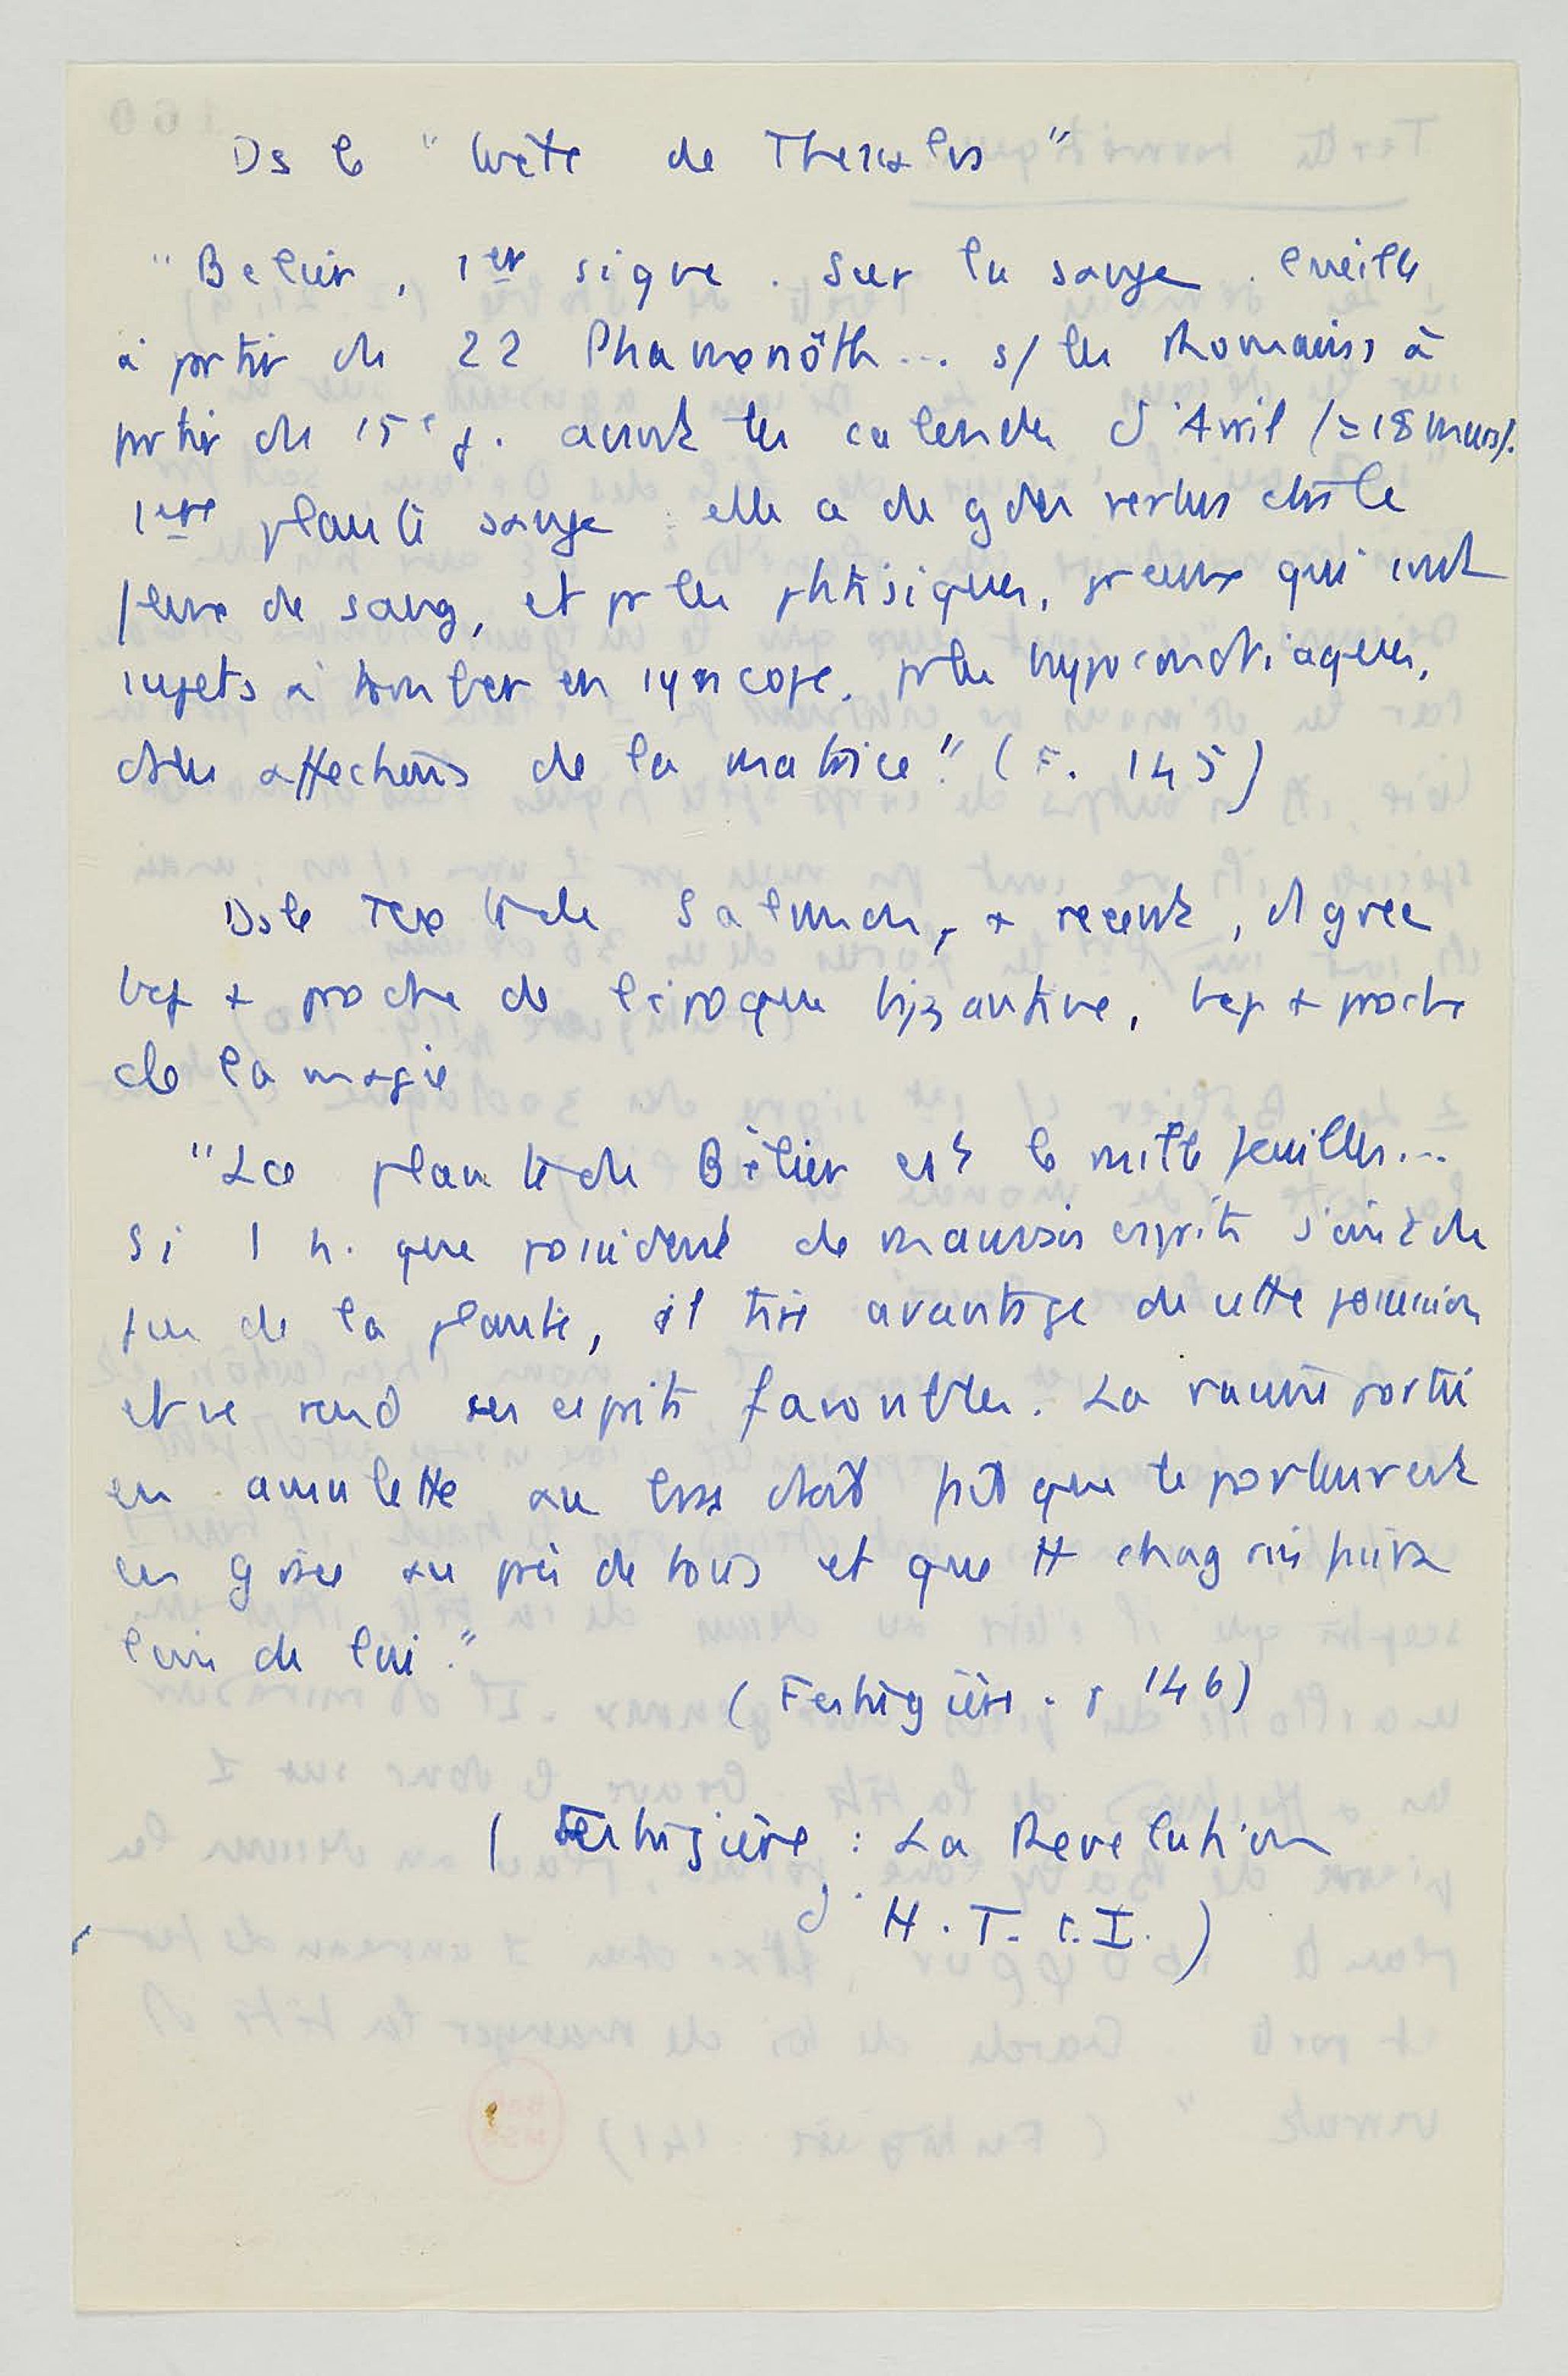 Ds le "traité de Thessalos"
"Belier, 1er signe. Sur la sauge. Cueille
à partir du 22 Phamenôth... s/ les Romains à
partir du 15e j. avant les calendes d'Avril (= 18 mars).
1ere plante sauge : elle a de gdes vertus ctre le
flux de sang, et pr les phtisiques, pr ceux qui sont
sujets à tomber en syncope, pr les hypocondriaques,
ctre les affections de la matrice." (F. 145)
Ds le texte de Salomon, + récent, et grec
bcp + proche de l'époque byzantine, bcp + proche
de la magie
"La plante du Bélier est le mille feuilles...
Si 1 h. que possèdent de mauvais esprits s'oint du
suc de la plante, il tire avantage de cette possession
et se rend ses esprits favorables. La racine portée
en amulette au bras droit fait que le porteur est
en grâce auprès de tous et que tt chagrin fuira
loin de lui."
(Festugière. p 146)
( Festugière : La Revelation
d' H. T. t. I. )